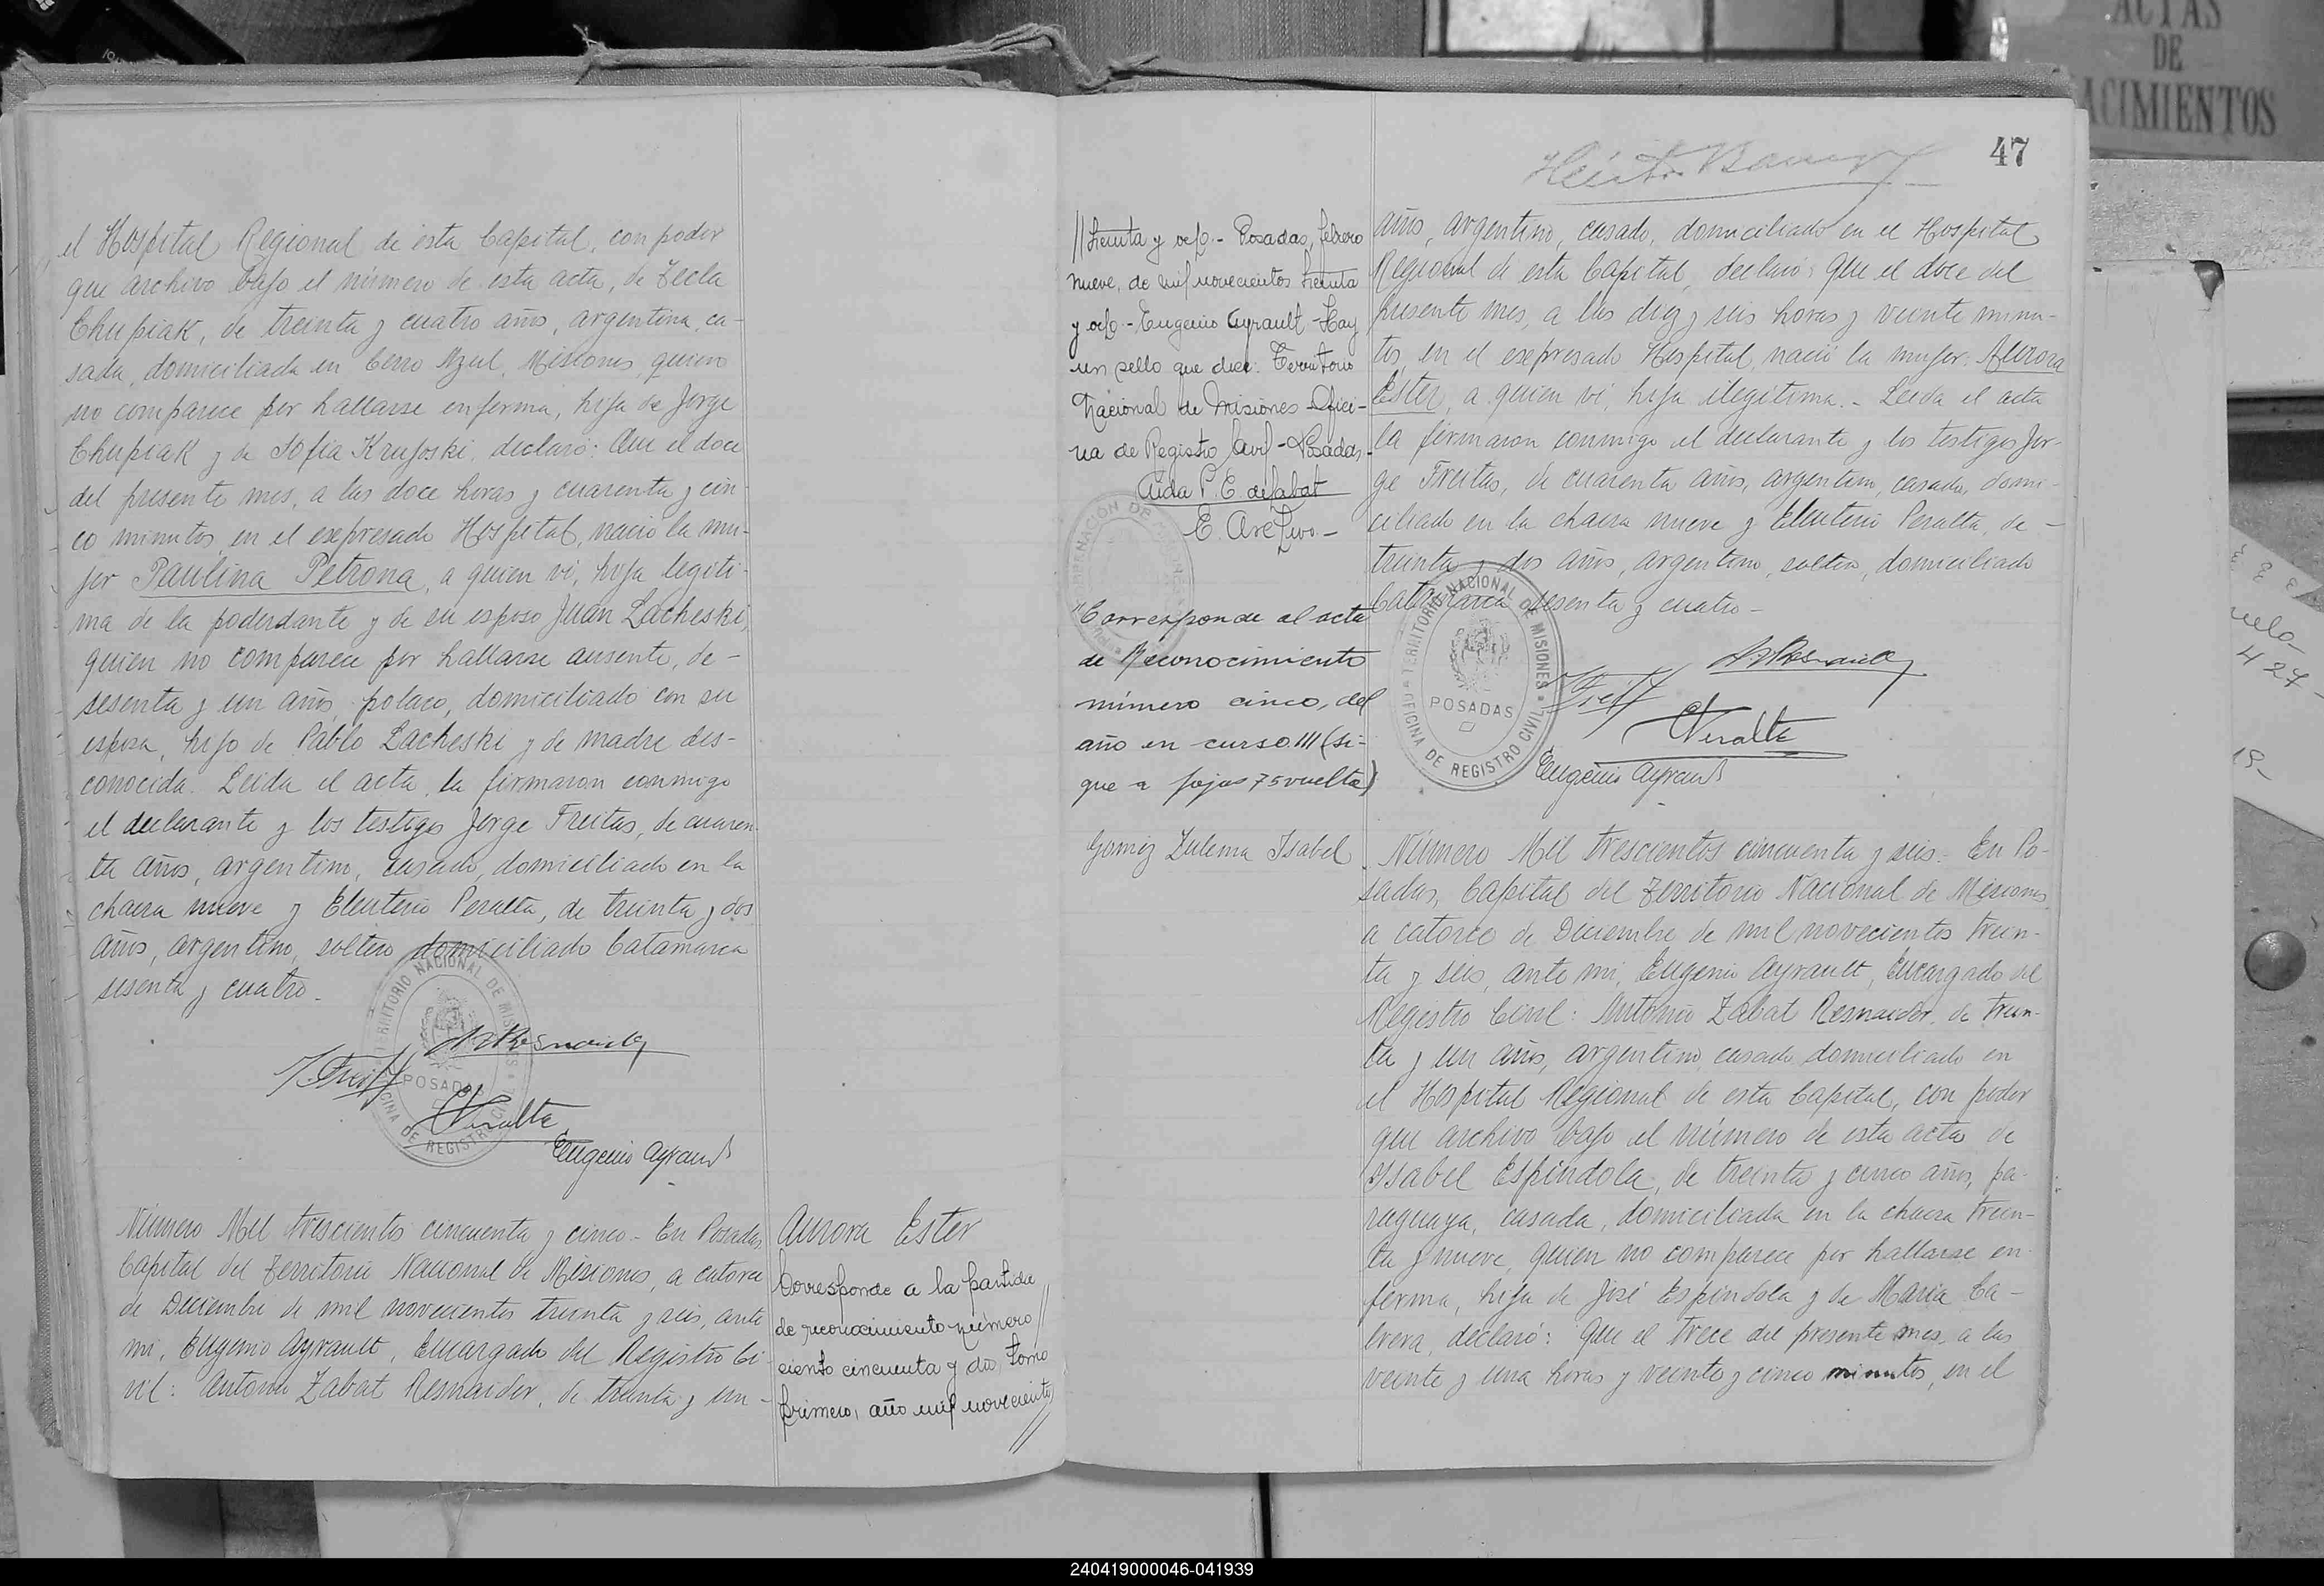 el Hospital Regional de esta Capital, con poder
que archivo bajo el número de esta acta, de Tecla
Chupiak, de treinta y cuatro años, argentina, ca-
sada, domiciliada en Cerro Azul, Misiones, quien
no comparece por hallarse enferma, hija de Jorge
Chupiak y de Sofia Krujoski, declaró: Que el doce
del presente mes, a las doce horas y cuarenta y cin-
co minutos, en el expresado Hospital, nació la mu-
jer Paulina Petrona, a quien vi, hija legiti-
ma de la poderdante y de su esposo Juan Lacheski,
quien no comparece por hallarse ausente, de-
sesenta y un años, polaco, domiciliado con su
esposa, hijo de Pablo Lacheski y de madre des-
conocida. Leida el acta, la firmaron conmigo
el declarante y los testigos Jorge Freitas, de cuaren-
ta años, argentino, casado, domiciliado en la
chacra nueve y Eleuterio Peralta, de treinta y dos
años, argentino, soltero, domiciliado Catamarca
sesenta y cuatro.
TERRITORIO NACIONAL DE MISIONES
OFICINA DE REGISTRO CIVIL
POSADAS
J. Freit
EPeralta
Eugenio Ayrault
Número Mil trescientos cincuenta y cinco.- En Posadas
Capital del Territorio Nacional de Misiones, a catorce
de Diciembre de mil novecientos treinta y seis, ante
mi, Eugenio Ayrault, Encargado del Registro Ci-
vil: Antonio Zabat Resnaider, de treinta y un-
Aurora Ester
Corresponde a la partida
de reconocimiento número
ciento cincuenta y dos, tomo
primero, año mil novecientos
//
47
//treinta y ocho.- Posadas, febrero
nueve, de mil novecientos treinta
y ocho - Eugenio Ayrault - Hay
un sello que dice: Territorio
Nacional de Misiones - Ofici-
na de Registro Civil - Posadas.
Aida P. E. de Sabat
"Corresponde al acta
de Reconocimiento
número cinco, del
año en curso./// (Si-
gue a fojas 75 vuelta)
años, argentino, casado, domiciliado en el Hospital
Regional de esta Capital, declaró: Que el doce del
presente mes, a las diez y seis horas y veinte minu-
tos, en el expresado Hospital, nació la mujer: Aurora
Ester, a quien vi, hija ilegitima.- Leida el acta
la firmaron conmigo el declarante y los testigos Jor-
ge Freitas, de cuarenta años, argentino, casado, domi-
ciliado en la chacra nueve y Eleuterio Peralta, de-
treinta y dos años, argentino, soltero, domiciliado
Catamarca sesenta y cuatro-
TERRITORIO NACIONAL DE MISIONES
OFICINA DE REGISTRO CIVIL
POSADAS
Freit
EPeralta
Eugenio Ayrault
Gomez Zulema Isabel
Número Mil trescientos cincuenta y seis.- En Po-
sadas, Capital del Territorio Nacional de Misiones
a catorce de Diciembre de mil novecientos trein-
ta y seis, ante mi, Eugenio Ayrault, Encargado del
Registro Civil: Antonio Zabat Resnaider, de trein-
ta y un años, argentino, casado, domiciliado en
el Hospital Regional de esta Capital, con poder
que archivo bajo el número de esta acta de
Ysabel Espindola, de treinta y cinco años, pa-
raguaya, casada, domiciliada en la chacra trein-
ta y nueve, quien no comparece por hallarse en-
ferma, hija de José Espindola y de Maria Ca-
brera, declaró: Que el trece del presente mes, a las
veinte y una horas y veinte y cinco minutos, en el
ACTAS
DE
NACIMIENTOS
240419000046-041939